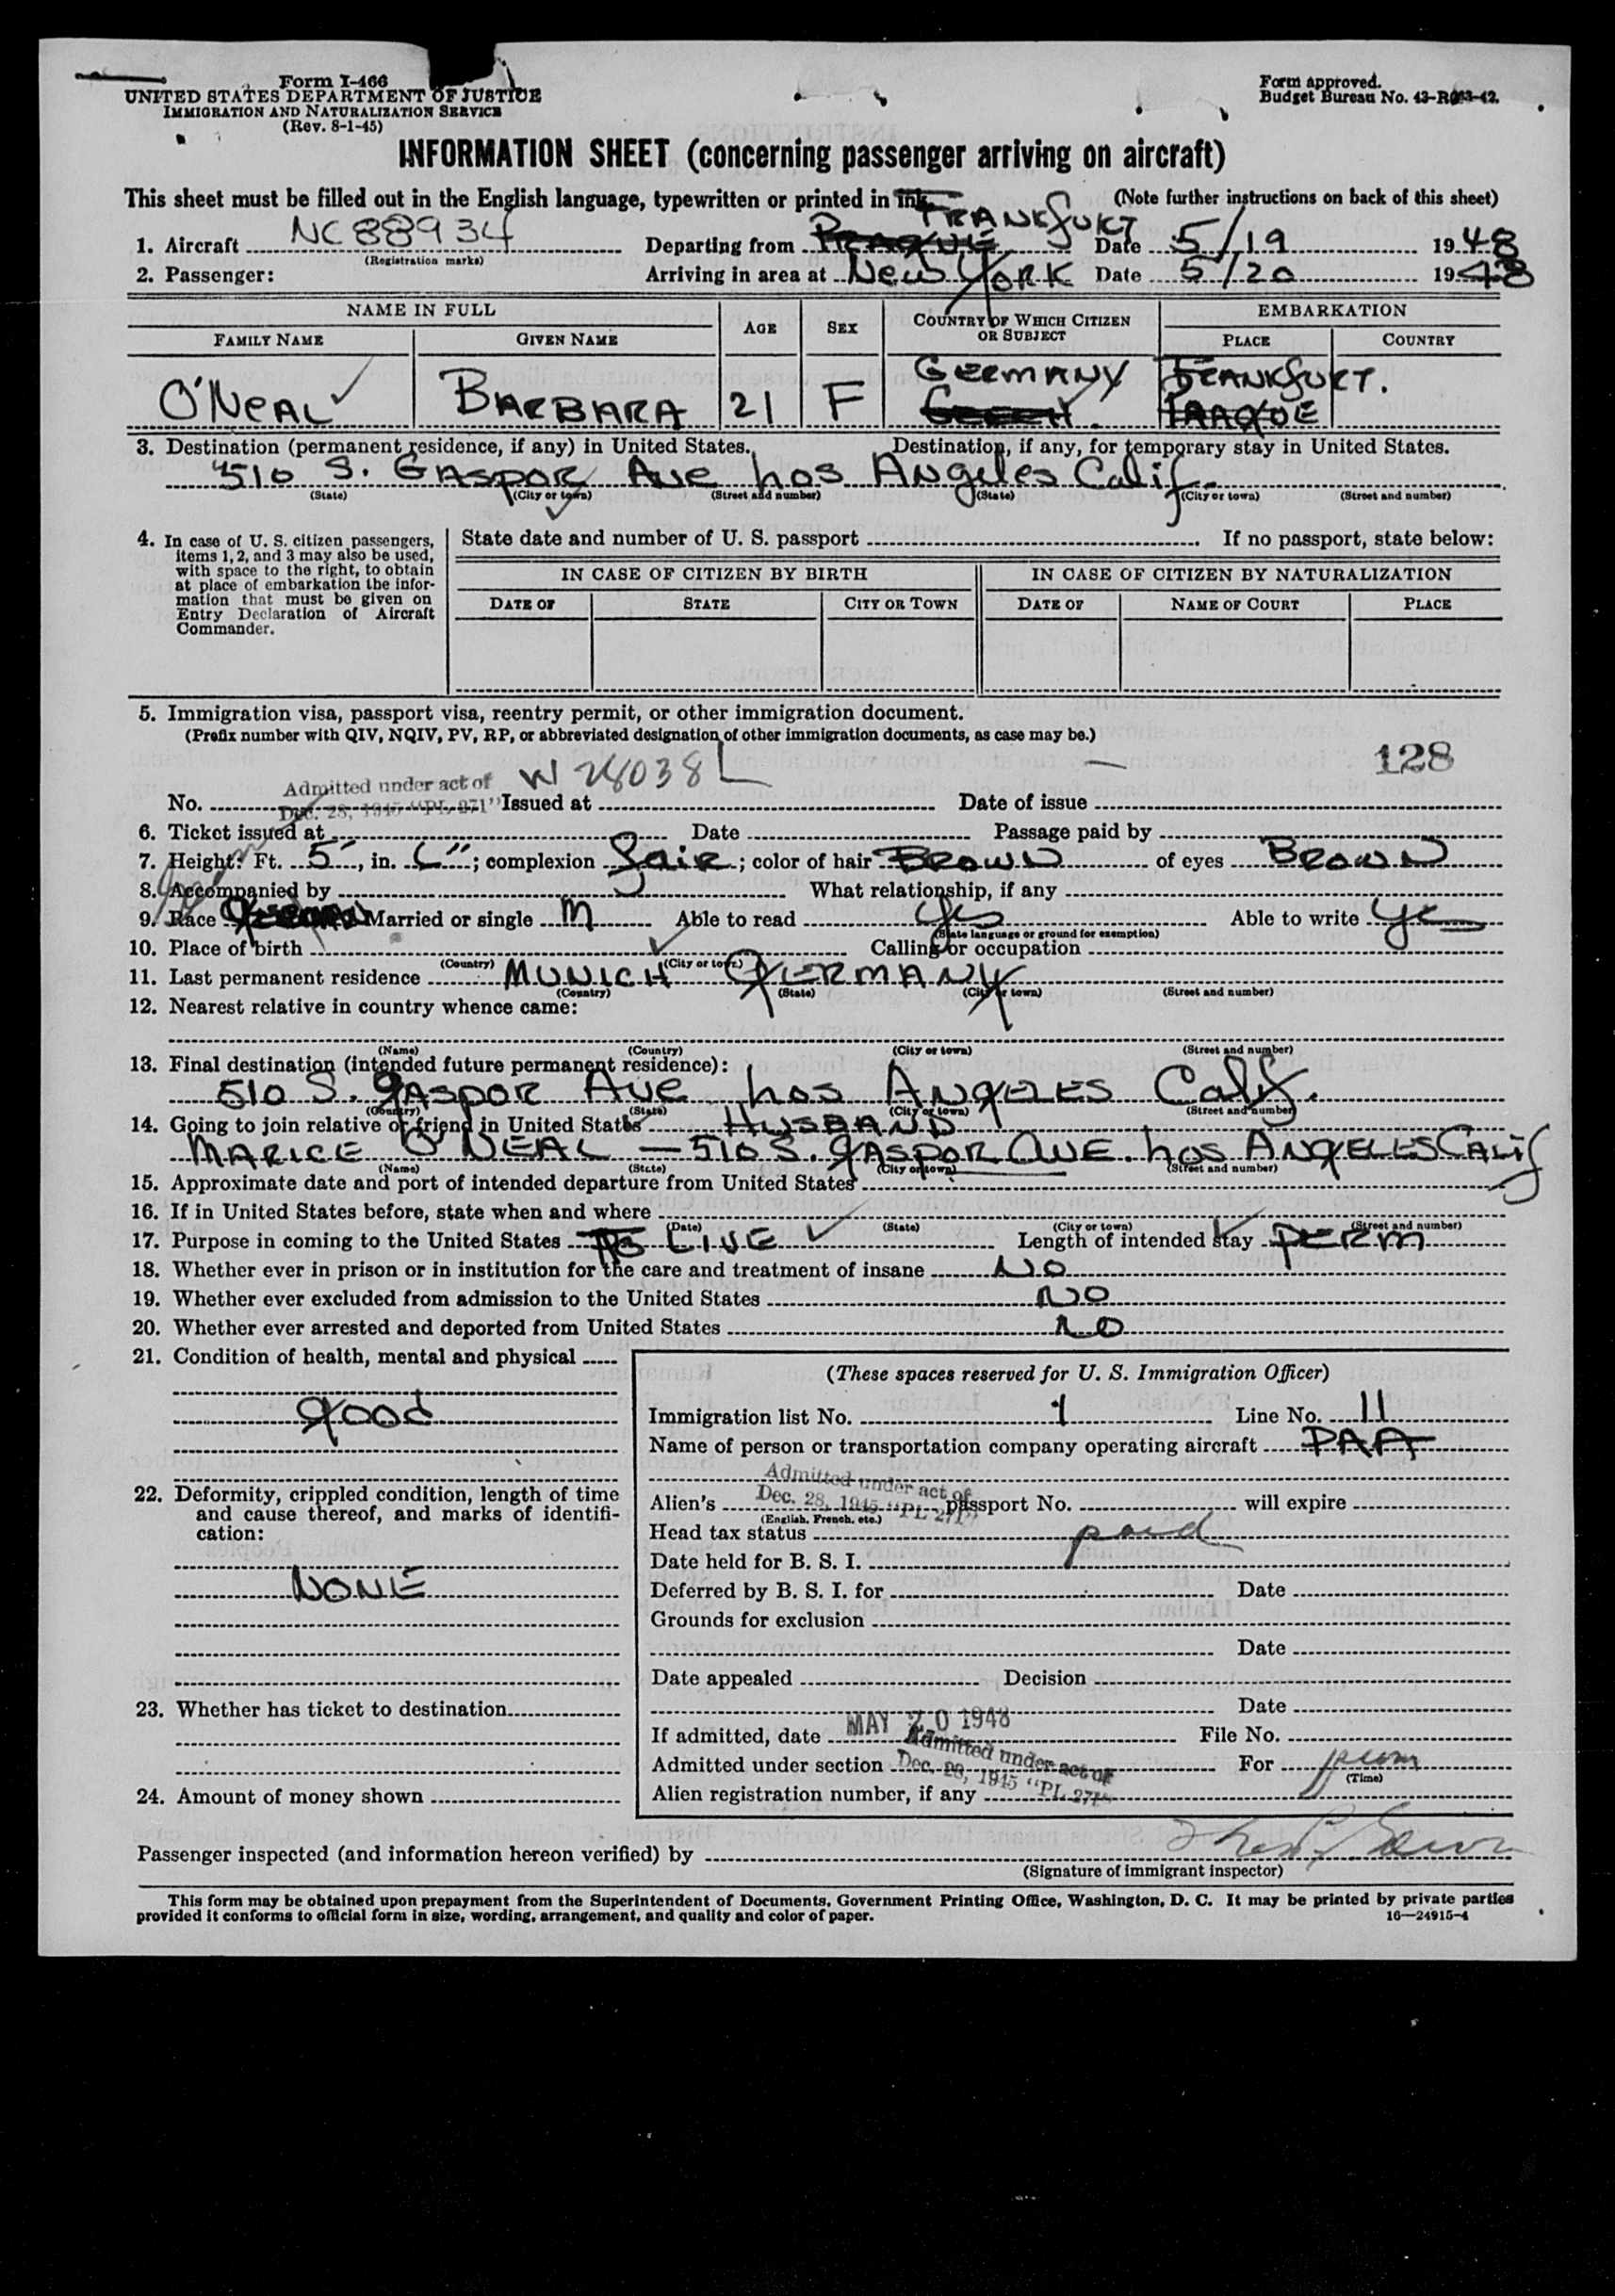 Form I-466
UNITED STATES DEPARTMENT OF JUSTICE
IMMIGRATION AND NATURALIZATION SERVICE
(Rev. 8-1-45)
Form approved.
Budget Bureau No. 43-
INFORMATION SHEET (concerning passenger arriving on aircraft)
This sheet must be filled out in the English language, typewritten or printed in ink. (Note further instructions on back of this sheet)
FRANKfURT
1. Aircraft NC 88934 Departing from PRAGUE Date 5/19 1948
(Registration marks)
2. Passenger: Arriving in area at New YORK Date 5/20 1948
NAME IN FULL AGE SEX COUNTRY OF WHICH CITIZEN OR SUBJECT EMBARKATION
FAMILY NAME GIVEN NAME PLACE COUNTRY
GERMANY FRANKfURT.
O'NEAL BARBARA 21 F PRAGUE
3. Destination (permanent residence, if any) in United States. Destination, if any, for temporary stay in United States.
510 S. GASPOR Ave Los Angeles Calif.
(State) (City or town) (Street and number) (State) (City or town) (Street and number)
4. In case of U. S. citizen passengers, items 1, 2, and 3 may also be used, with space to the right, to obtain at place of embarkation the information that must be given on Entry Declaration of Aircraft Commander.
State date and number of U. S. passport If no passport, state below:
IN CASE OF CITIZEN BY BIRTH IN CASE OF CITIZEN BY NATURALIZATION
DATE OF STATE CITY OR TOWN DATE OF NAME OF COURT PLACE
5. Immigration visa, passport visa, reentry permit, or other immigration document.
(Prefix number with QIV, NQIV, PV, RP, or abbreviated designation of other immigration documents, as case may be.)
128
Admitted under act of W 28038
No. Dec. 28, 1945 "PL 271" Issued at Date of issue
6. Ticket issued at Date Passage paid by
7. Height: Ft. 5', in. 6"; complexion fair; color of hair BROWN of eyes BROWN
8. Accompanied by What relationship, if any
9. Race Married or single M Able to read yes Able to write yes
(State language or ground for exemption)
10. Place of birth Calling or occupation
(Country) (City or town)
11. Last permanent residence MUNICH GERMANY
(Country) (State) (City or town) (Street and number)
12. Nearest relative in country whence came:
(Name) (Country) (City or town) (Street and number)
13. Final destination (intended future permanent residence):
510 S. GASPOR Ave Los ANGELES Calif.
(Country) (State) (City or town) (Street and number)
14. Going to join relative or friend in United States HUSBAND
MARICE O'NEAL — 510 S. GASPOR AVE. Los ANGELES CALif
(Name) (State) (City or town) (Street and number)
15. Approximate date and port of intended departure from United States
16. If in United States before, state when and where
(Date) (State) (City or town) (Street and number)
17. Purpose in coming to the United States TO LIVE Length of intended stay PERM
18. Whether ever in prison or in institution for the care and treatment of insane NO
19. Whether ever excluded from admission to the United States NO
20. Whether ever arrested and deported from United States NO
21. Condition of health, mental and physical
good
22. Deformity, crippled condition, length of time and cause thereof, and marks of identification:
NONE
23. Whether has ticket to destination
24. Amount of money shown
(These spaces reserved for U. S. Immigration Officer)
Immigration list No. 1 Line No. 11
Name of person or transportation company operating aircraft PAA
Admitted under act of
Alien's Dec. 28, 1945 "PL 271" passport No. will expire
(English, French, etc.)
Head tax status paid
Date held for B. S. I.
Deferred by B. S. I. for Date
Grounds for exclusion
Date
Date appealed Decision
Date
If admitted, date MAY 20 1948 File No.
Admitted under act of
Admitted under section Dec. 28, 1945 "PL 271" For perm
(Time)
Alien registration number, if any
Passenger inspected (and information hereon verified) by
(Signature of immigrant inspector)
This form may be obtained upon prepayment from the Superintendent of Documents, Government Printing Office, Washington, D. C. It may be printed by private parties
provided it conforms to official form in size, wording, arrangement, and quality and color of paper.
16—24915-4